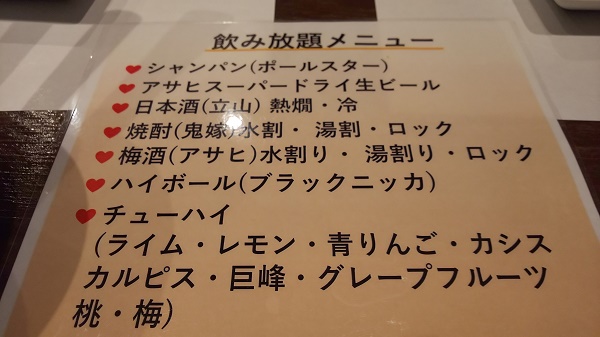 飲み放題メニュー
シャンパン(ポールスター)
アサヒスーパードライ生ビール
日本酒(立山) 熱燗・冷
焼酎(鬼嫁)水割・湯割・ロック
梅酒(アサヒ)水割り・湯割り・ロック
ハイボール(ブラックニッカ)
チューハイ
(ライム・レモン・青りんご・カシス
カルピス・巨峰・グレープフルーツ
桃・梅)